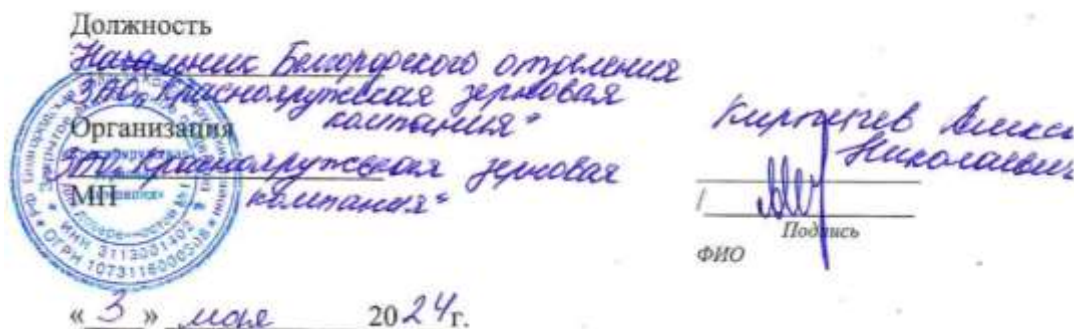 Должность
Начальник Белгородского отделения
ЗАО "Краснояружская зерновая
компания"
Организация
ЗАО "Краснояружская зерновая
компания"
МП
Николаевич
/
Подпись
ФИО
ИНН 3113001402
«3» мая 2024г.